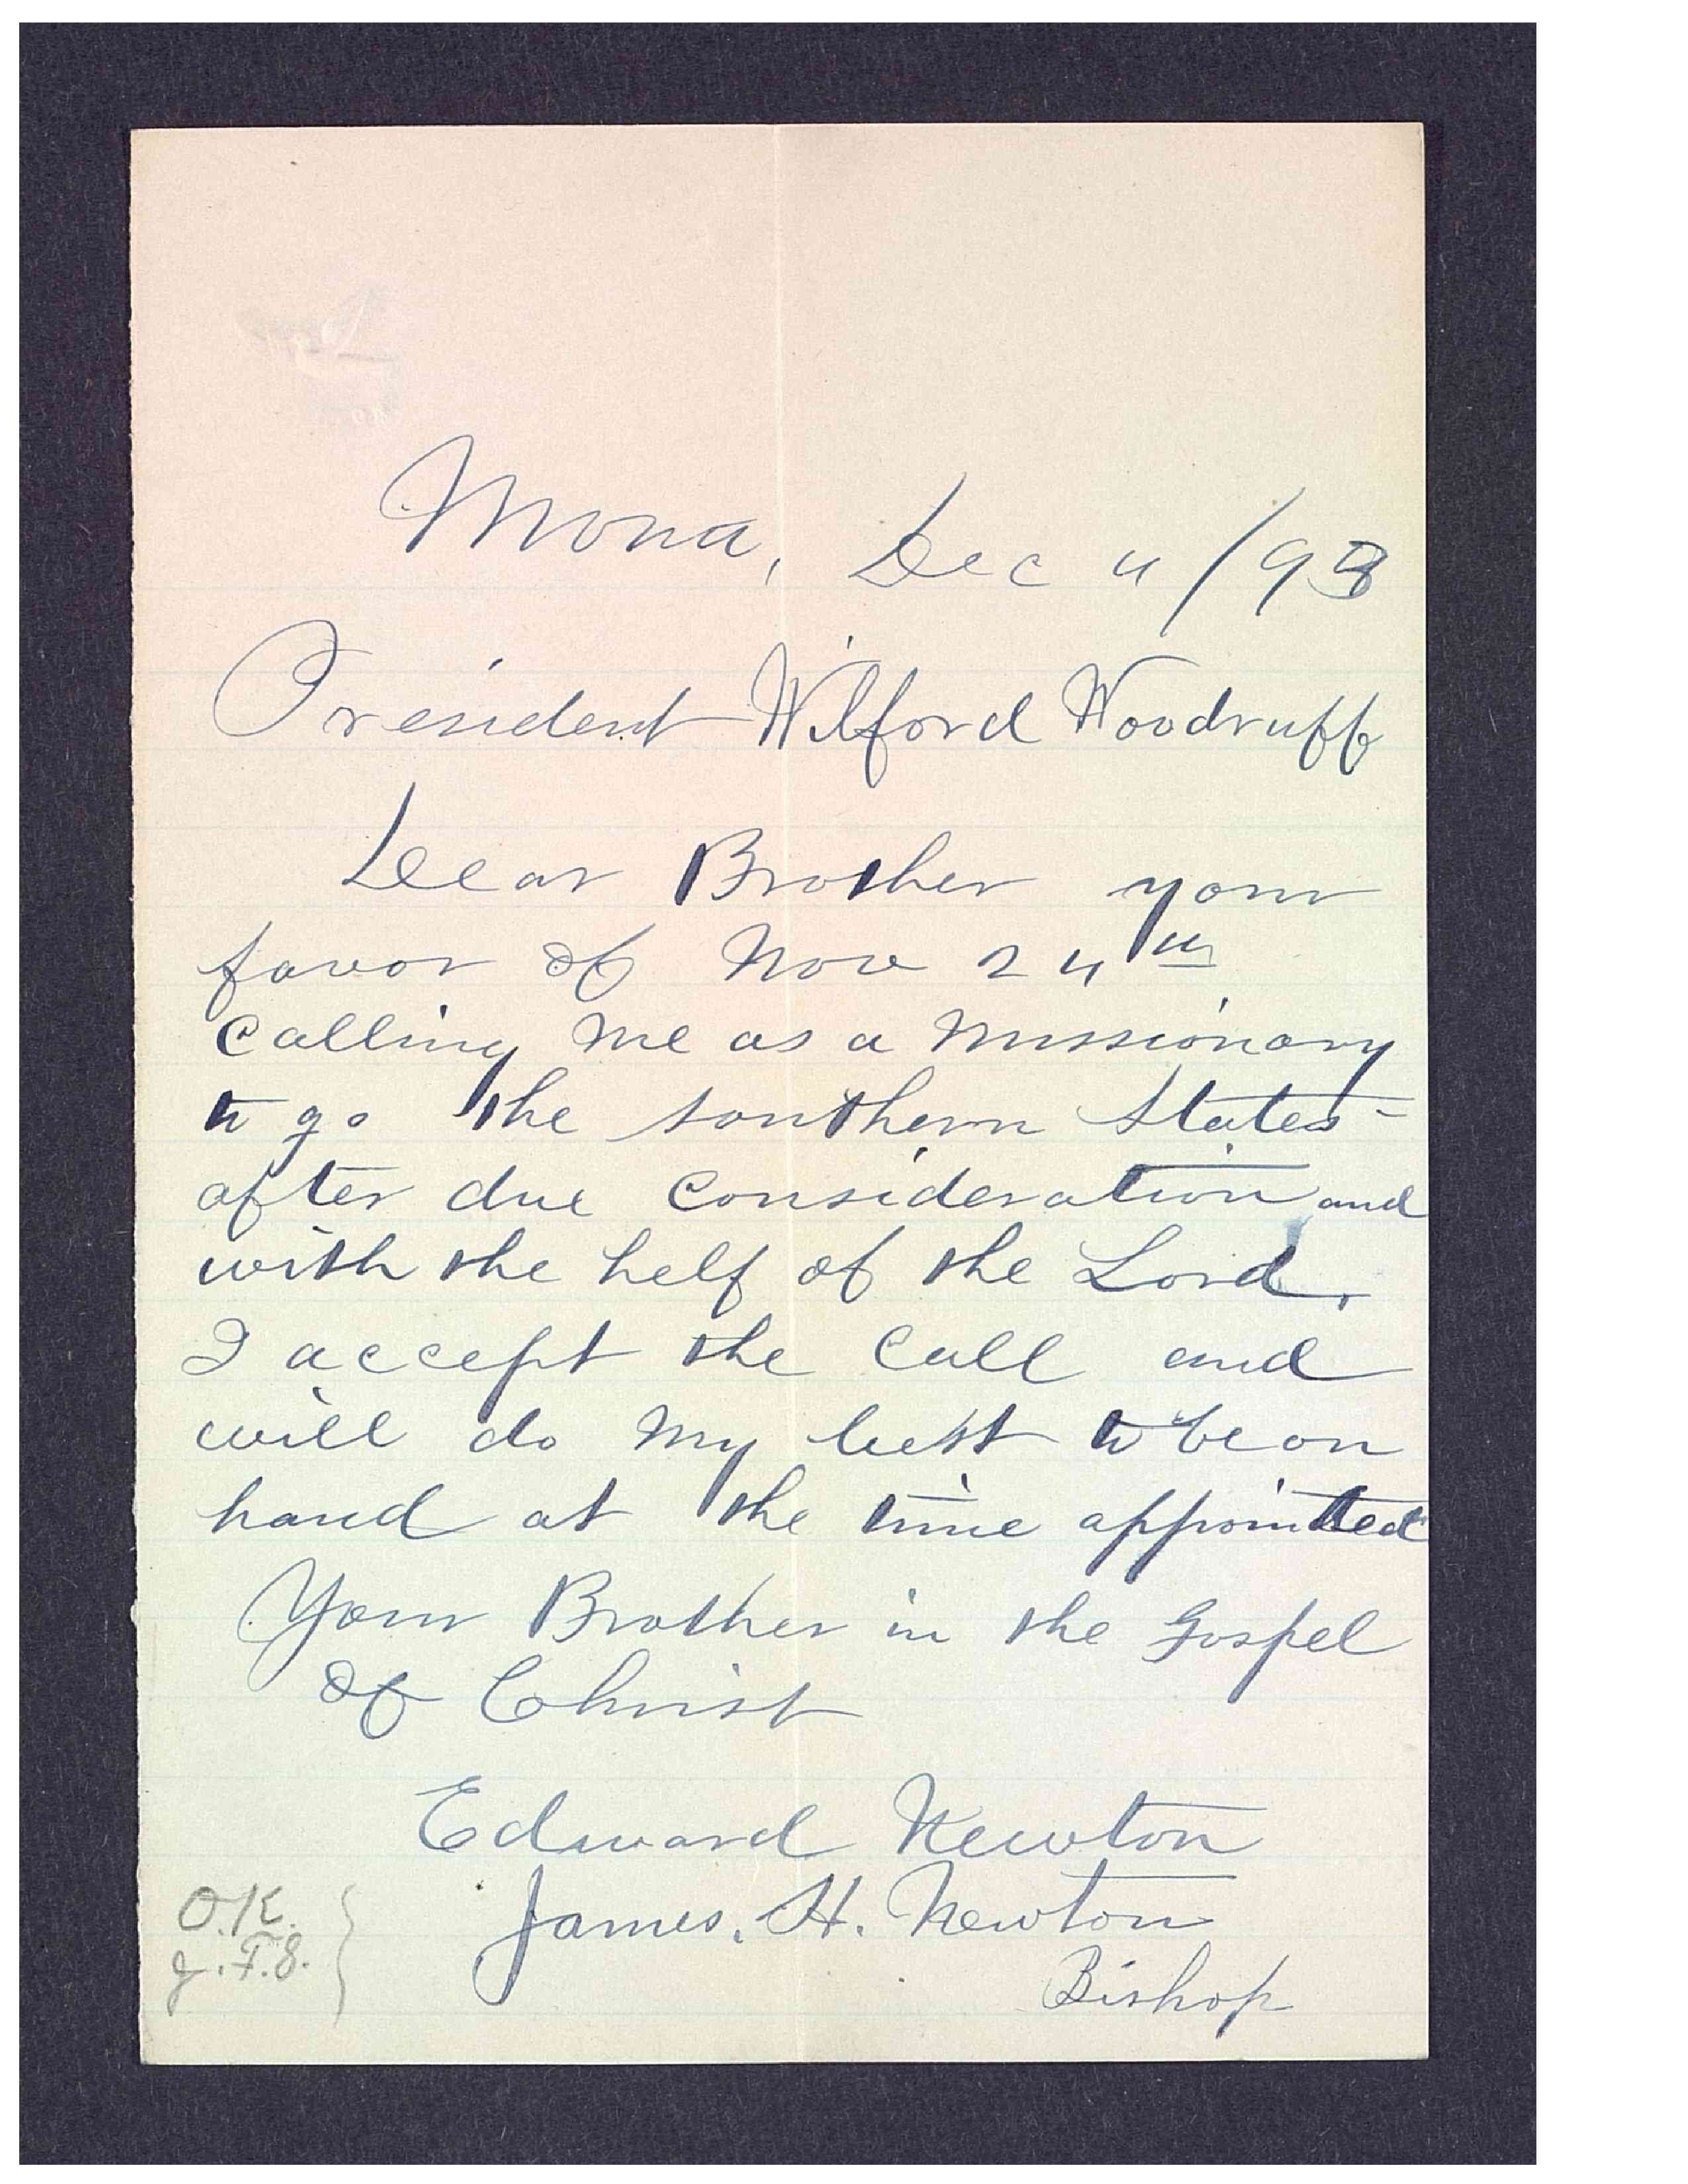 Mona, Dec 4/93
President Wilford Woodruff
Dear Brother your
favor of Nov 24th
calling me as a missionary
to go the southern States-
after due consideration and
with the help of the Lord,
I accept the call and
will do my best to be on
hand at the time appointed
Your Brother in the Gospel
of Christ
Edward Newton
James. H. Newton
Bishop
O.K.
J.F.S.